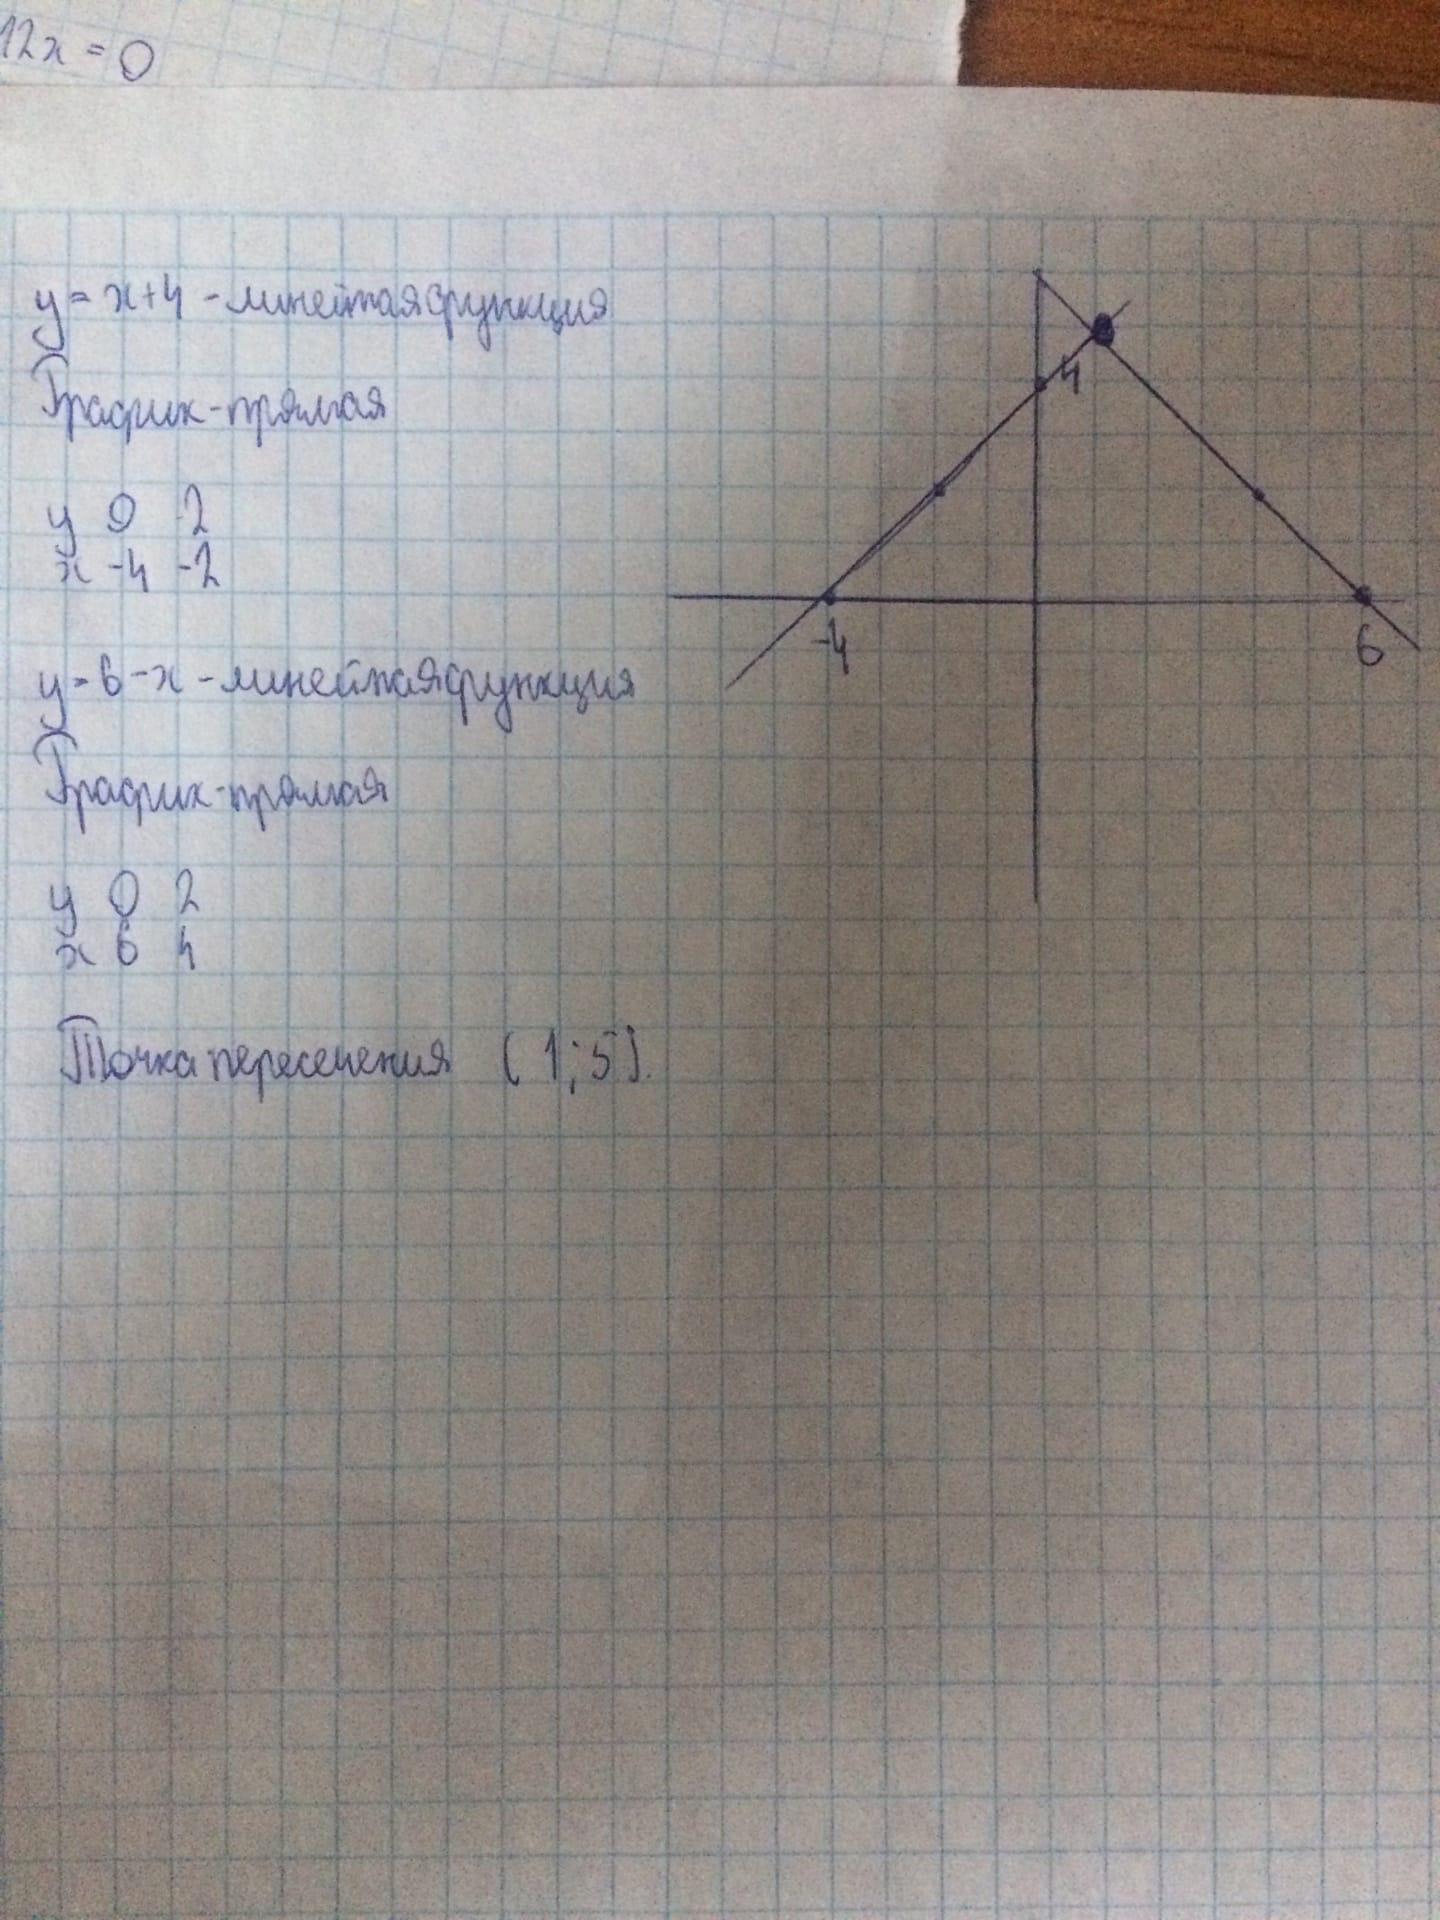 12x = 0
y = x + 4 - линейная функция
График - прямая
y 0 2
x -4 -2
y = 6 - x - линейная функция
График - прямая
y 0 2
x 6 4
Точка пересечения (1; 5).
4
-4
6